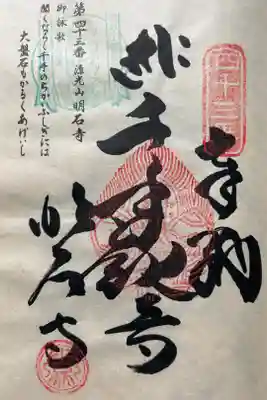 四十三番
奉納
千手観音
明石寺
第四十三番 源光山 明石寺
御詠歌
聞くならく千手のちかいふしぎには
大盤石もかろくあげいし